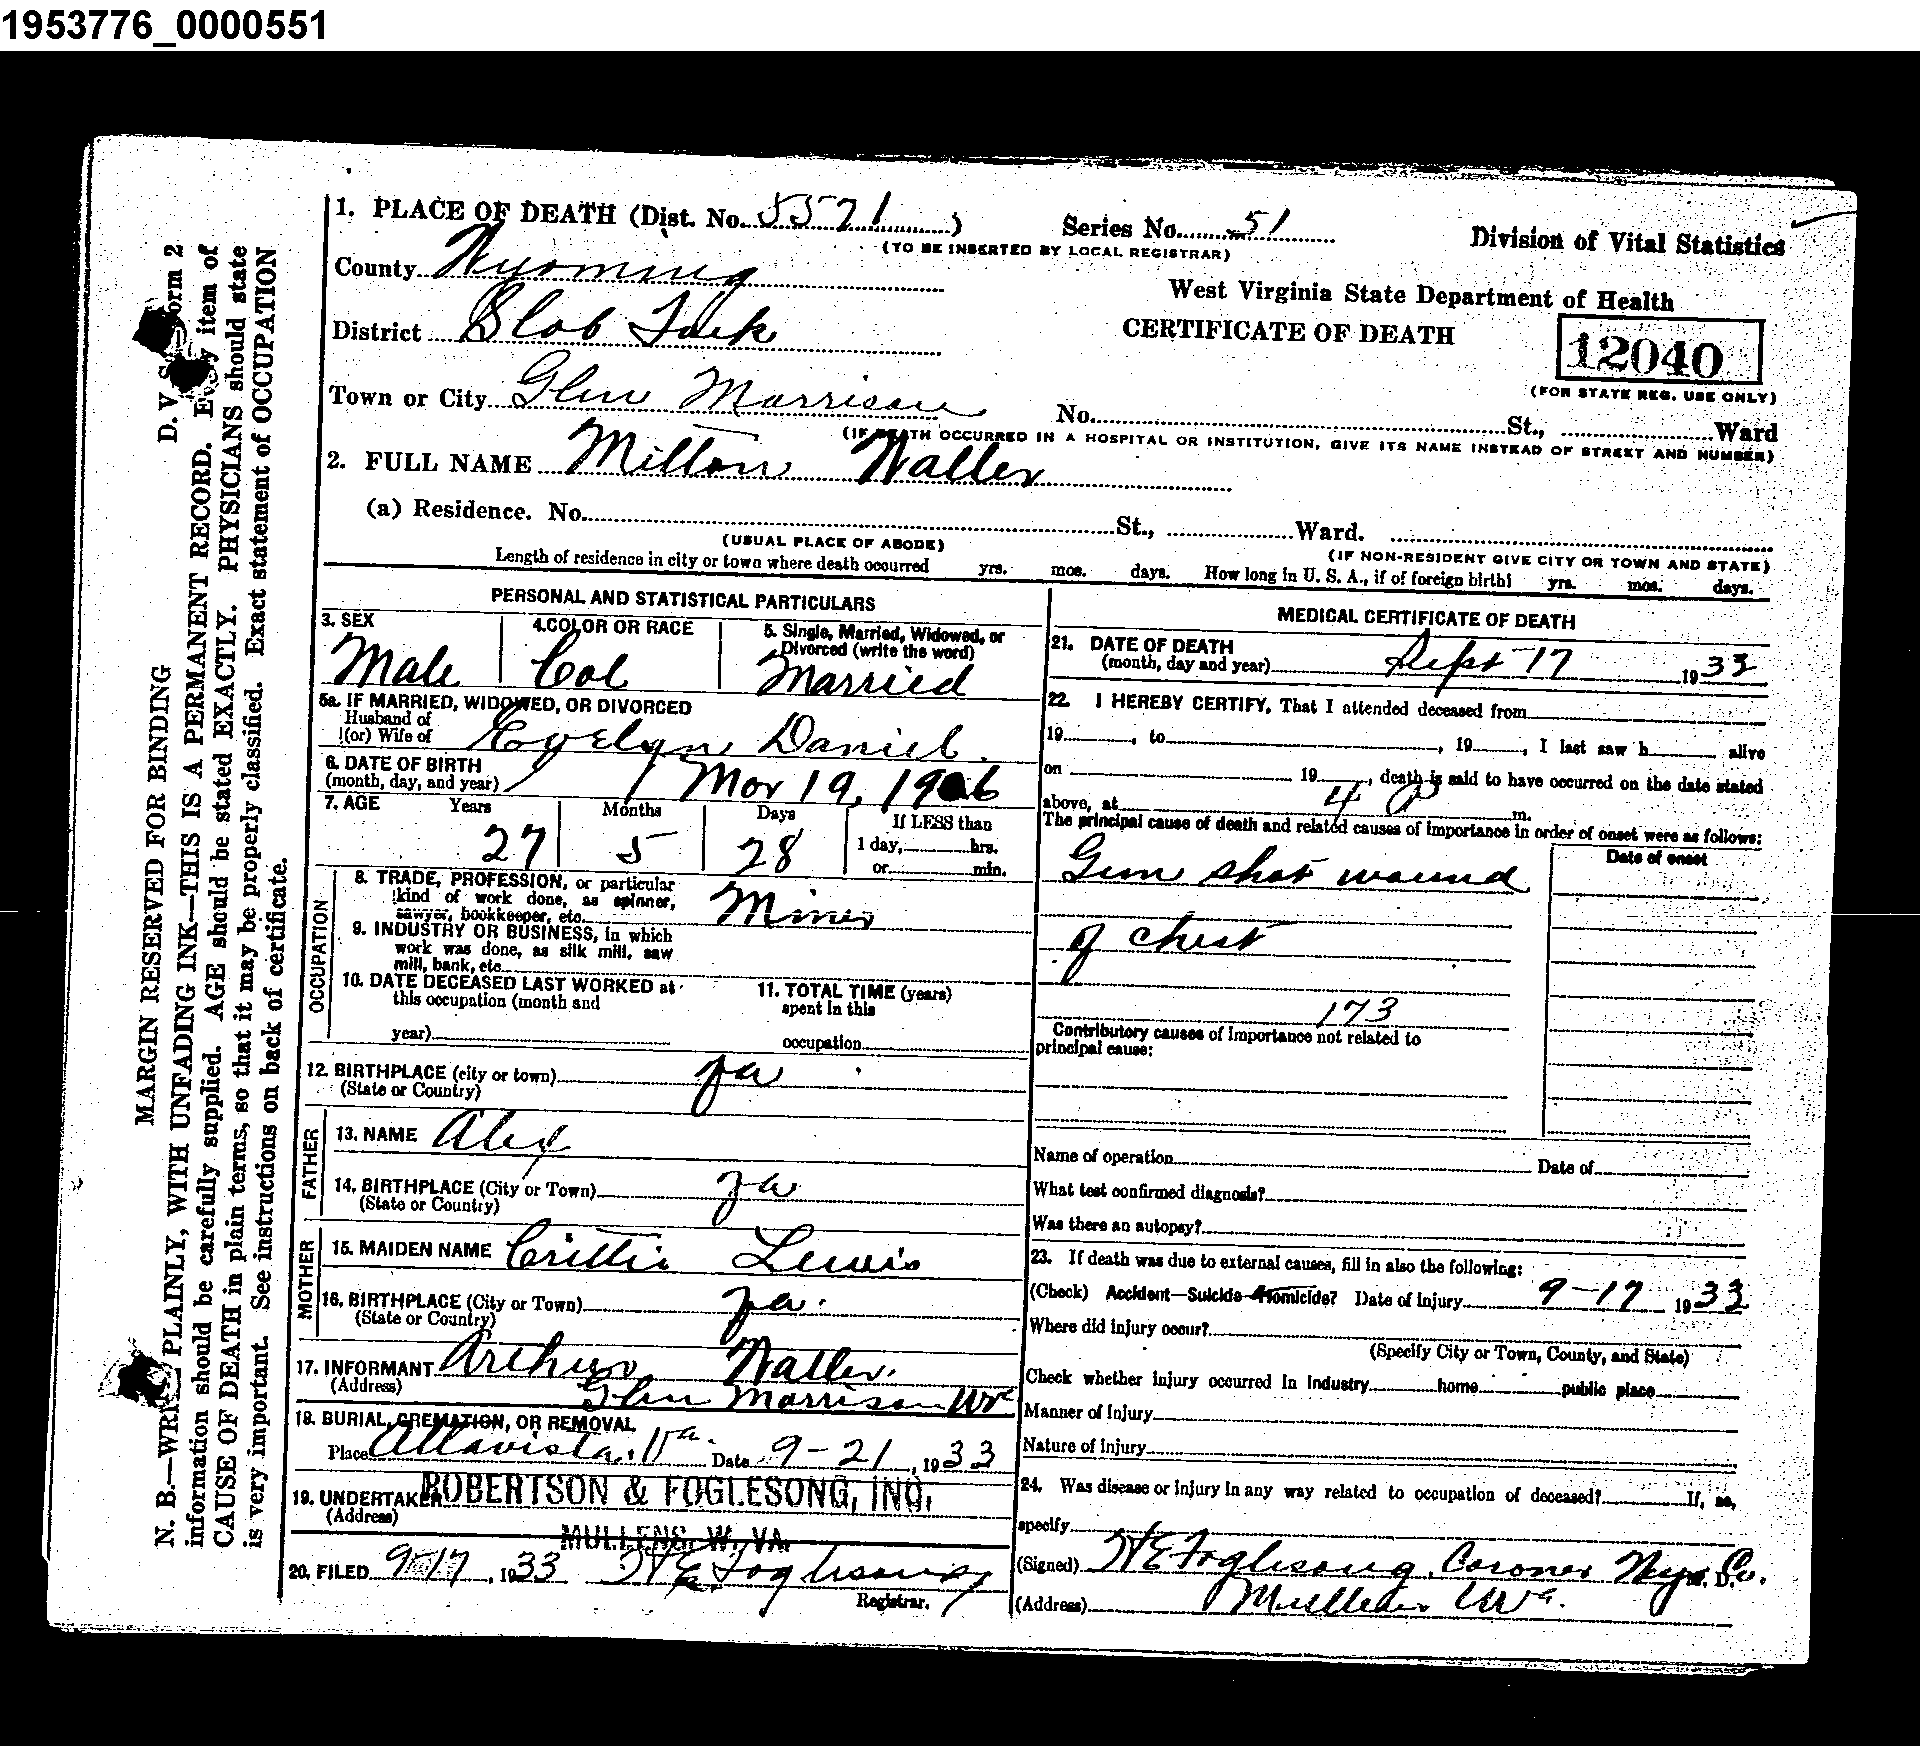 1953776_0000551
1. PLACE OF DEATH (Dist. No. 5571 ) Series No. 51 Division of Vital Statistics
(TO BE INSERTED BY LOCAL REGISTRAR)
County Wyoming
West Virginia State Department of Health
District Slab Fork CERTIFICATE OF DEATH 12040
(FOR STATE REG. USE ONLY)
Town or City Glen Morrison No. St., Ward
(IF DEATH OCCURRED IN A HOSPITAL OR INSTITUTION, GIVE ITS NAME INSTEAD OF STREET AND NUMBER)
2. FULL NAME Milton Waller
(a) Residence. No. St., Ward.
(USUAL PLACE OF ABODE) (IF NON-RESIDENT GIVE CITY OR TOWN AND STATE)
Length of residence in city or town where death occurred yrs. mos. days. How long in U. S. A., if of foreign birth? yrs. mos. days.
PERSONAL AND STATISTICAL PARTICULARS
3. SEX 4. COLOR OR RACE 5. Single, Married, Widowed, or
Divorced (write the word)
Male Col Married
5a. IF MARRIED, WIDOWED, OR DIVORCED
Husband of
(or) Wife of Evelyn Daniel
6. DATE OF BIRTH
(month, day, and year) Mar 19, 1906
7. AGE Years Months Days If LESS than
27 5 28 1 day, hrs.
or min.
OCCUPATION
8. TRADE, PROFESSION, or particular
kind of work done, as spinner,
sawyer, bookkeeper, etc. Miner
9. INDUSTRY OR BUSINESS, in which
work was done, as silk mill, saw
mill, bank, etc.
10. DATE DECEASED LAST WORKED at
this occupation (month and
year)
11. TOTAL TIME (years)
spent in this
occupation
12. BIRTHPLACE (city or town) Va
(State or Country)
FATHER
13. NAME Alex
14. BIRTHPLACE (City or Town) Va
(State or Country)
MOTHER
15. MAIDEN NAME Crittie Lewis
16. BIRTHPLACE (City or Town) Va.
(State or Country)
17. INFORMANT Arthur Waller.
(Address) Glen Morrison Wva
18. BURIAL, CREMATION, OR REMOVAL
Place Altavista, Va. Date 9-21, 1933
19. UNDERTAKER ROBERTSON & FOGLESONG, INC.
(Address) MULLENS, W. VA.
20. FILED 9-17, 1933 H E Foglesong
Registrar.
MEDICAL CERTIFICATE OF DEATH
21. DATE OF DEATH
(month, day and year) Sept 17 1933
22. I HEREBY CERTIFY, That I attended deceased from
19 , to , 19 , I last saw h alive
on 19 , death is said to have occurred on the date stated
above, at 4 P m.
The principal cause of death and related causes of importance in order of onset were as follows:
Date of onset
Gun shot wound
of chest
173
Contributory causes of importance not related to
principal cause:
Name of operation Date of
What test confirmed diagnosis?
Was there an autopsy?
23. If death was due to external causes, fill in also the following:
(Check) Accident—Suicide—Homicide? Date of injury 9-17 1933
Where did injury occur?
(Specify City or Town, County, and State)
Check whether injury occurred in industry home public place
Manner of Injury
Nature of Injury
24. Was disease or injury in any way related to occupation of deceased? If, so,
specify
(Signed) H E Foglesong, Coroner Wyo Co.
(Address) Mullens WVa.
D. V. S. Form 2
MARGIN RESERVED FOR BINDING
N. B.—WRITE PLAINLY, WITH UNFADING INK—THIS IS A PERMANENT RECORD. Every item of
information should be carefully supplied. AGE should be stated EXACTLY. PHYSICIANS should state
CAUSE OF DEATH in plain terms, so that it may be properly classified. Exact statement of OCCUPATION
is very important. See instructions on back of certificate.